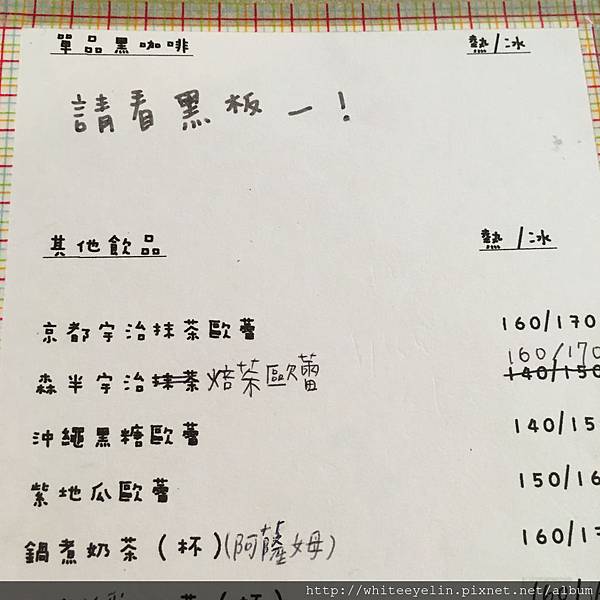 單品黑咖啡 熱/冰
請看黑板—!
其他飲品 熱/冰
京都宇治抹茶歐蕾 160/170
160/170
森半宇治抹茶焙茶歐蕾 140/150
沖繩黑糖歐蕾 140/15
紫地瓜歐蕾 150/16
鍋煮奶茶(杯)(阿薩姆) 160/17
茶(杯) 160/1
http://whiteeyelin.pixnet.net/album